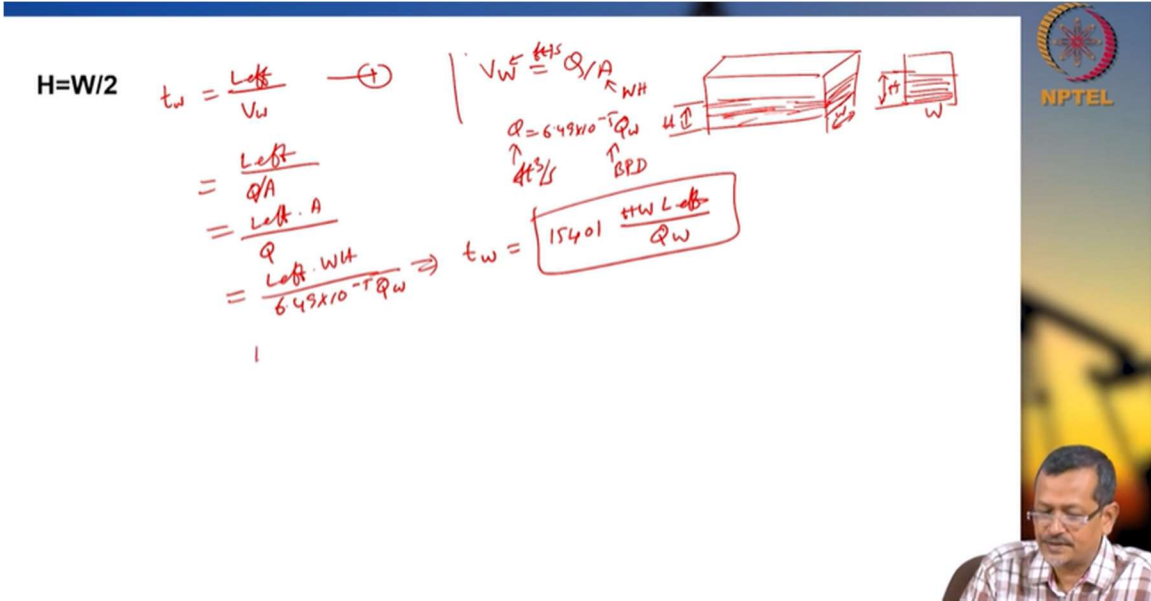 H=W/2
tw = Leff / Vw — (+)
= Leff / Q/A
= Leff. A / Q
= Leff. WH / 6.49×10⁻⁵ Qw ⇒ tw = 15401 HW Leff / Qw
Vw = Q/A
ft/s
WH
Q = 6.49×10⁻⁵ Qw
ft³/s
BPD
H
W
H
W
NPTEL